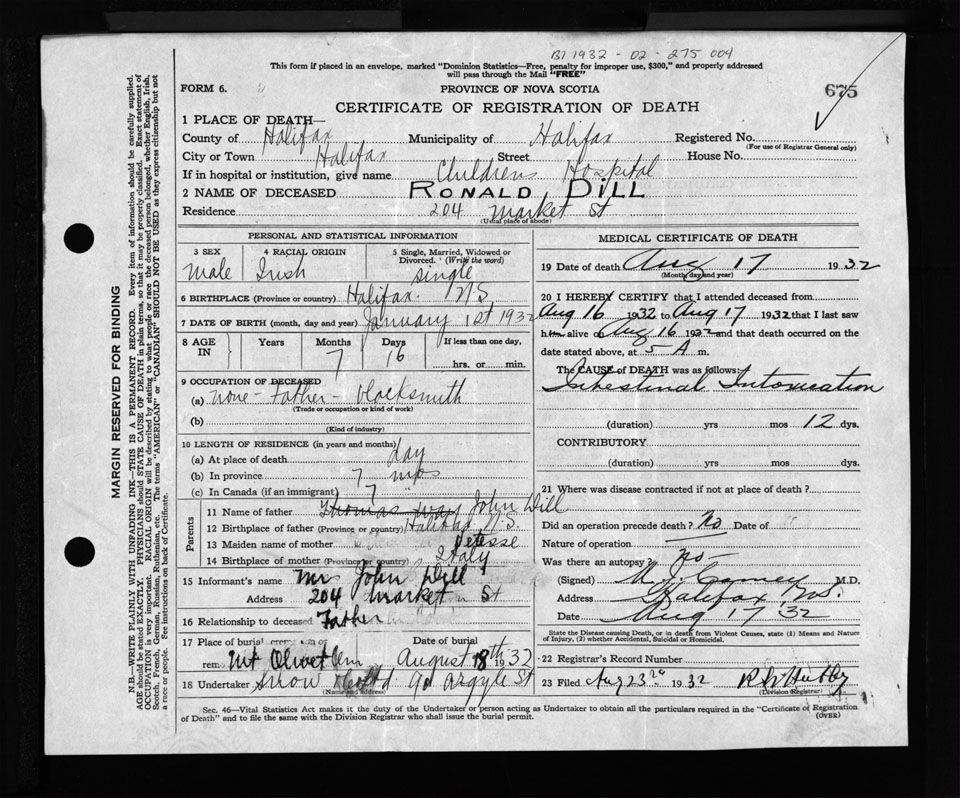 B1 1932 - 02 - 275 004
This form if placed in an envelope, marked "Dominion Statistics—Free, penalty for improper use, $300," and properly addressed
will pass through the Mail "FREE"
FORM 6.
PROVINCE OF NOVA SCOTIA
675
CERTIFICATE OF REGISTRATION OF DEATH
1 PLACE OF DEATH—
County of Halifax Municipality of Halifax Registered No.
(For use of Registrar General only)
City or Town Halifax Street House No.
If in hospital or institution, give name Childrens Hospital
2 NAME OF DECEASED RONALD DILL
Residence 204 Market St
(Usual place of abode)
PERSONAL AND STATISTICAL INFORMATION
3 SEX Male
4 RACIAL ORIGIN Irish
5 Single, Married, Widowed or
Divorced. (Write the word)
single
6 BIRTHPLACE (Province or country) Halifax N.S.
7 DATE OF BIRTH (month, day and year) January 1st 1932
8 AGE IN Years Months 7 Days 16 If less than one day,
hrs. or min.
9 OCCUPATION OF DECEASED
(a) None - Father - blacksmith
(Trade or occupation or kind of work)
(b)
(Kind of industry)
10 LENGTH OF RESIDENCE (in years and months)
(a) At place of death day
(b) In province 7 mos
(c) In Canada (if an immigrant) 7
Parents
11 Name of father Thomas John Dill
12 Birthplace of father (Province or country) Halifax N.S.
13 Maiden name of mother
14 Birthplace of mother (Province or country) Italy
15 Informant's name Mr John Dill
Address 204 Market St
16 Relationship to deceased Father
17 Place of burial
Mt Olivet Cem
Date of burial
August 18th 1932
18 Undertaker Snow 90 Argyle St
(Name and address)
MEDICAL CERTIFICATE OF DEATH
19 Date of death Aug 17 1932
(Month, day and year)
20 I HEREBY CERTIFY that I attended deceased from
Aug 16 1932 to Aug 17 1932 that I last saw
him alive on Aug 16 1932 and that death occurred on the
date stated above, at 5 A m.
The CAUSE of DEATH was as follows:
Intestinal Intoxication
(duration) yrs mos 12 dys.
CONTRIBUTORY
(duration) yrs mos dys.
21 Where was disease contracted if not at place of death?
Did an operation precede death? No Date of
Nature of operation
Was there an autopsy? no
(Signed) M.D.
Address Halifax N.S.
Date Aug 17 '32
State the Disease causing Death, or in death from Violent Causes, state (1) Means and Nature
of Injury, (2) whether Accidental, Suicidal or Homicidal.
22 Registrar's Record Number
23 Filed Aug 23rd 1932
(Division Registrar)
Sec. 46—Vital Statistics Act makes it the duty of the Undertaker or person acting as Undertaker to obtain all the particulars required in the "Certificate of Registration
of Death" and to file the same with the Division Registrar who shall issue the burial permit.
(OVER)
MARGIN RESERVED FOR BINDING
N.B.—WRITE PLAINLY WITH UNFADING INK—THIS IS A PERMANENT RECORD. Every item of information should be carefully supplied.
AGE should be stated EXACTLY. PHYSICIANS should STATE CAUSE OF DEATH in plain terms, so that it may be properly classified. Exact statement of
OCCUPATION is very important. RACIAL ORIGIN will be described by stating to what people or race the deceased person belonged, whether English, Irish,
Scotch, French, German, Russian, Ruthenian, etc. The terms "AMERICAN" or "CANADIAN" SHOULD NOT BE USED as they express citizenship but not
a race or people. See instructions on back of Certificate.